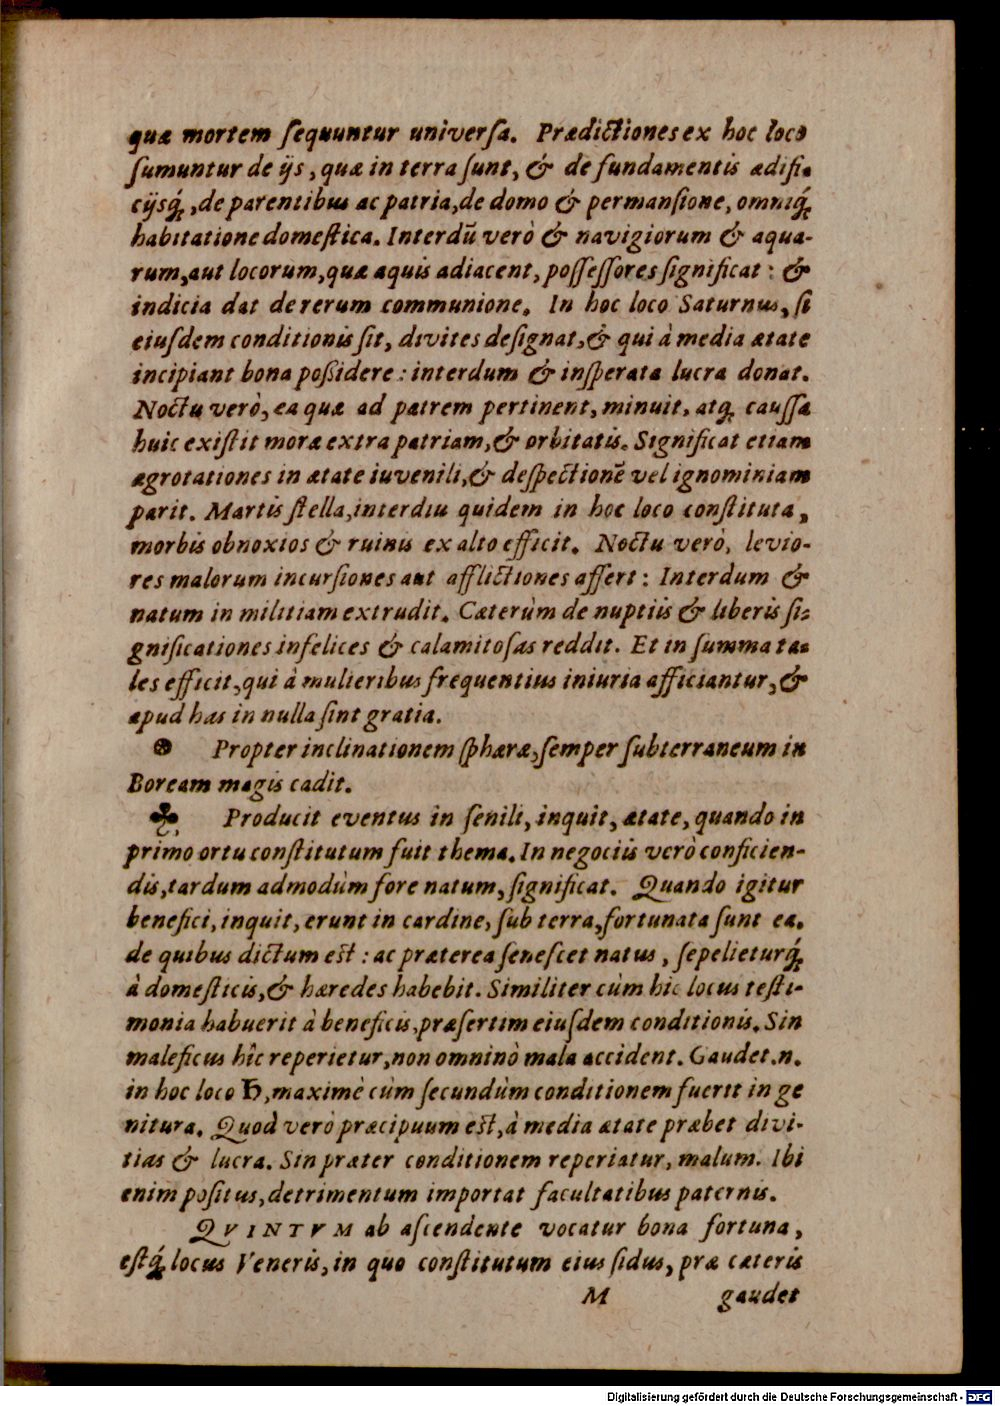 quæ mortem ſequuntur univerſa. Prædictiones ex hoc loco
ſumuntur de ijs, quæ in terra ſunt, & de fundamentis ædifi-
cijsq́;, de parentibus ac patria, de domo & permanſione, omniq́;
habitatione domeſtica. Interdũ verò & navigiorum & aqua-
rum, aut locorum, quæ aquis adiacent, poſſeſſores ſignificat: &
indicia dat de rerum communione. In hoc loco Saturnus, ſi
eiuſdem conditionis ſit, divites deſignat, & qui à media ætate
incipiant bona poßidere: interdum & inſperata lucra donat.
Noctu verò, ea quæ ad patrem pertinent, minuit, atq; cauſſa
huic exiſtit moræ extra patriam, & orbitatis. Significat etiam
ægrotationes in ætate iuvenili, & deſpectionẽ vel ignominiam
parit. Martis ſtella, interdiu quidem in hoc loco conſtituta,
morbis obnoxios & ruinis ex alto efficit. Noctu verò, levio-
res malorum incurſiones aut afflictiones affert: Interdum &
natum in militiam extrudit. Cæterùm de nuptiis & liberis ſi-
gnificationes infelices & calamitoſas reddit. Et in ſumma ta-
les efficit, qui à mulieribus frequentius iniuria afficiantur, &
apud has in nulla ſint gratia.
⊛ Propter inclinationem ſphæræ, ſemper ſubterraneum in
Boream magis cadit.
♣ Producit eventus in ſenili, inquit, ætate, quando in
primo ortu conſtitutum fuit thema. In negociis verò conficien-
dis, tardum admodùm fore natum, ſignificat. Quando igitur
benefici, inquit, erunt in cardine, ſub terra, fortunata ſunt ea,
de quibus dictum est: ac præterea ſeneſcet natus, ſepelieturq́;
à domeſticis, & hæredes habebit. Similiter cùm hic locus teſti-
monia habuerit à beneficis, præſertim eiuſdem conditionis. Sin
maleficus hîc reperietur, non omninò mala accident. Gaudet.n.
in hoc loco ♄, maximè cùm ſecundùm conditionem fuerit in ge
nitura. Quod verò præcipuum est, à media ætate præbet divi-
tias & lucra. Sin præter conditionem reperiatur, malum. Ibi
enim poſitus, detrimentum importat facultatibus paternis.
QVINTVM ab aſcendente vocatur bona fortuna,
eſtq́; locus Veneris, in quo conſtitutum eius ſidus, præ cæteris
M gaudet
Digitalisierung gefördert durch die Deutsche Forschungsgemeinschaft - DFG